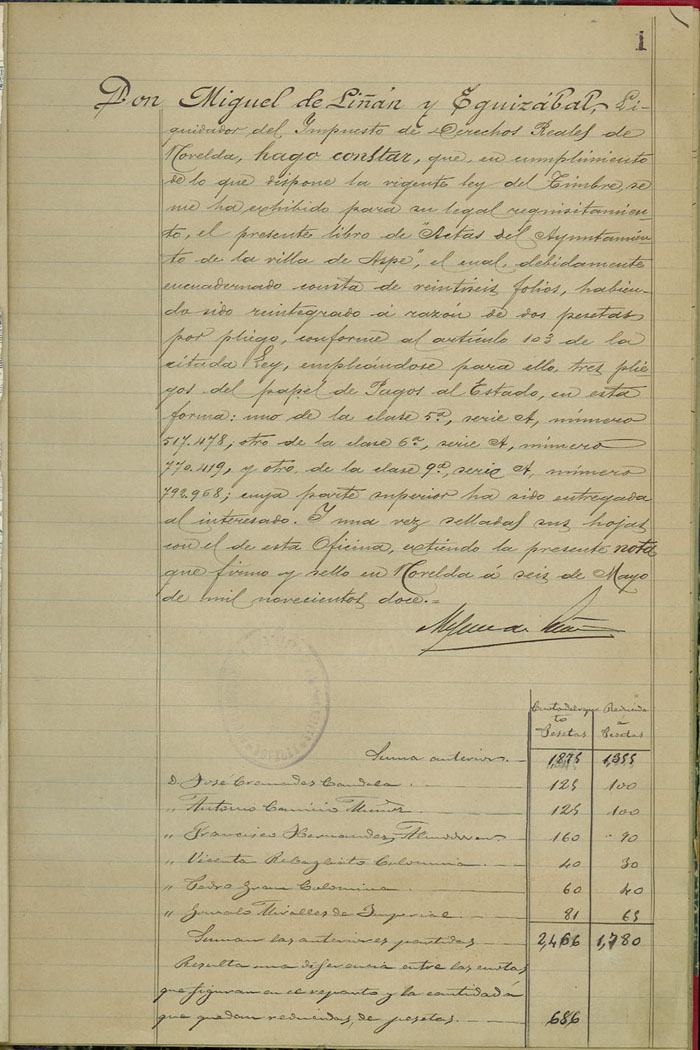 1
Don Miguel de Liñán y Eguizábal, Li-
quidador del Impuesto de Derechos Reales de
Novelda, hago constar, que, en cumplimiento
de lo que dispone la vigente ley del Timbre, se
me ha exhibido para su legal requisitamien-
to, el presente libro de "Actas del Ayuntamien-
to de la villa de Aspe", el cual, debidamente
encuadernado consta de veintiseis folios, habien-
do sido reintegrado á razón de dos pesetas
por pliego, conforme al artículo 103 de la
citada Ley, empleándose para ello, tres plie-
gos del papel de Pagos al Estado, en esta
forma: uno de la clase 5ª, serie A, número
517.478, otro de la clase 6ª, serie A, número
770.419, y otro de la clase 9ª, serie A, número
792.968; cuya parte superior ha sido entregada
al interesado. Y una vez selladas sus hojas
con el de esta Oficina, extiendo la presente nota
que firmo y sello en Novelda á seis de Mayo
de mil novecientos doce.=
Miguel de Liñán
Reducida
to á
Pesetas Pesetas
Suma anterior 1875 1,355
D. José Cremades Candela 125 100
" Antonio Muñoz 125 100
" Francisco Hernandez 160 90
" Vicenta Rebagliato Colomina 40 30
" Pedro Juan Colomina 60 40
" Gonzalo Miralles de Imperial 81 65
Suman las anteriores partidas 2,466 1,780
Resulta una diferencia entre las cuotas
que figuran en el reparto y la cantidad á
que quedan reducidas, de pesetas. 686